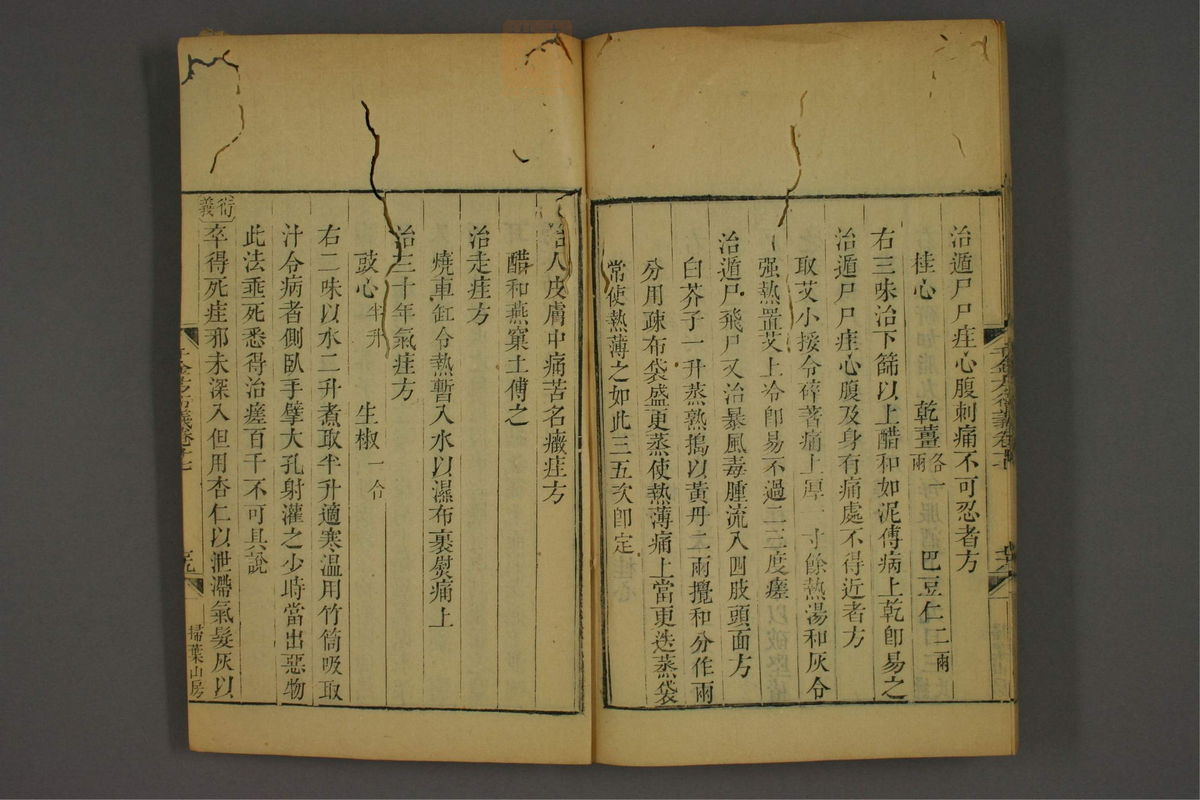 治遁尸尸疰心腹刺痛不可忍者方
桂心 乾薑各一兩 巴豆仁二兩
右三味治下篩以上醋和如泥傅病上乾即易之
治遁尸尸疰心腹及身有痛處不得近者方
取艾小挼令碎著痛上厚一寸餘熱湯和灰令
强熱置艾上冷卽易不過二三度瘥
治遁尸飛尸又治暴風毒腫流入四肢頭面方
白芥子一升蒸熟搗以黃丹二兩攪和分作兩
分用疎布袋盛更蒸使熱薄痛上當更迭蒸袋
常使熱薄之如此三五次卽定
治人皮膚中痛苦名癥疰方
醋和燕窠土傅之
治走疰方
燒車缸令熱暫入水以濕布裹熨痛上
治三十年氣疰方
豉心半升 生椒一合
右二味以水二升煮取半升適寒溫用竹筒吸取
汁令病者側臥手擘大孔射灌之少時當出惡物
此法垂死悉得治瘥百千不可具說
衍義
卒得死疰邪未深入但用杏仁以泄滯氣髮灰以
掃葉山房